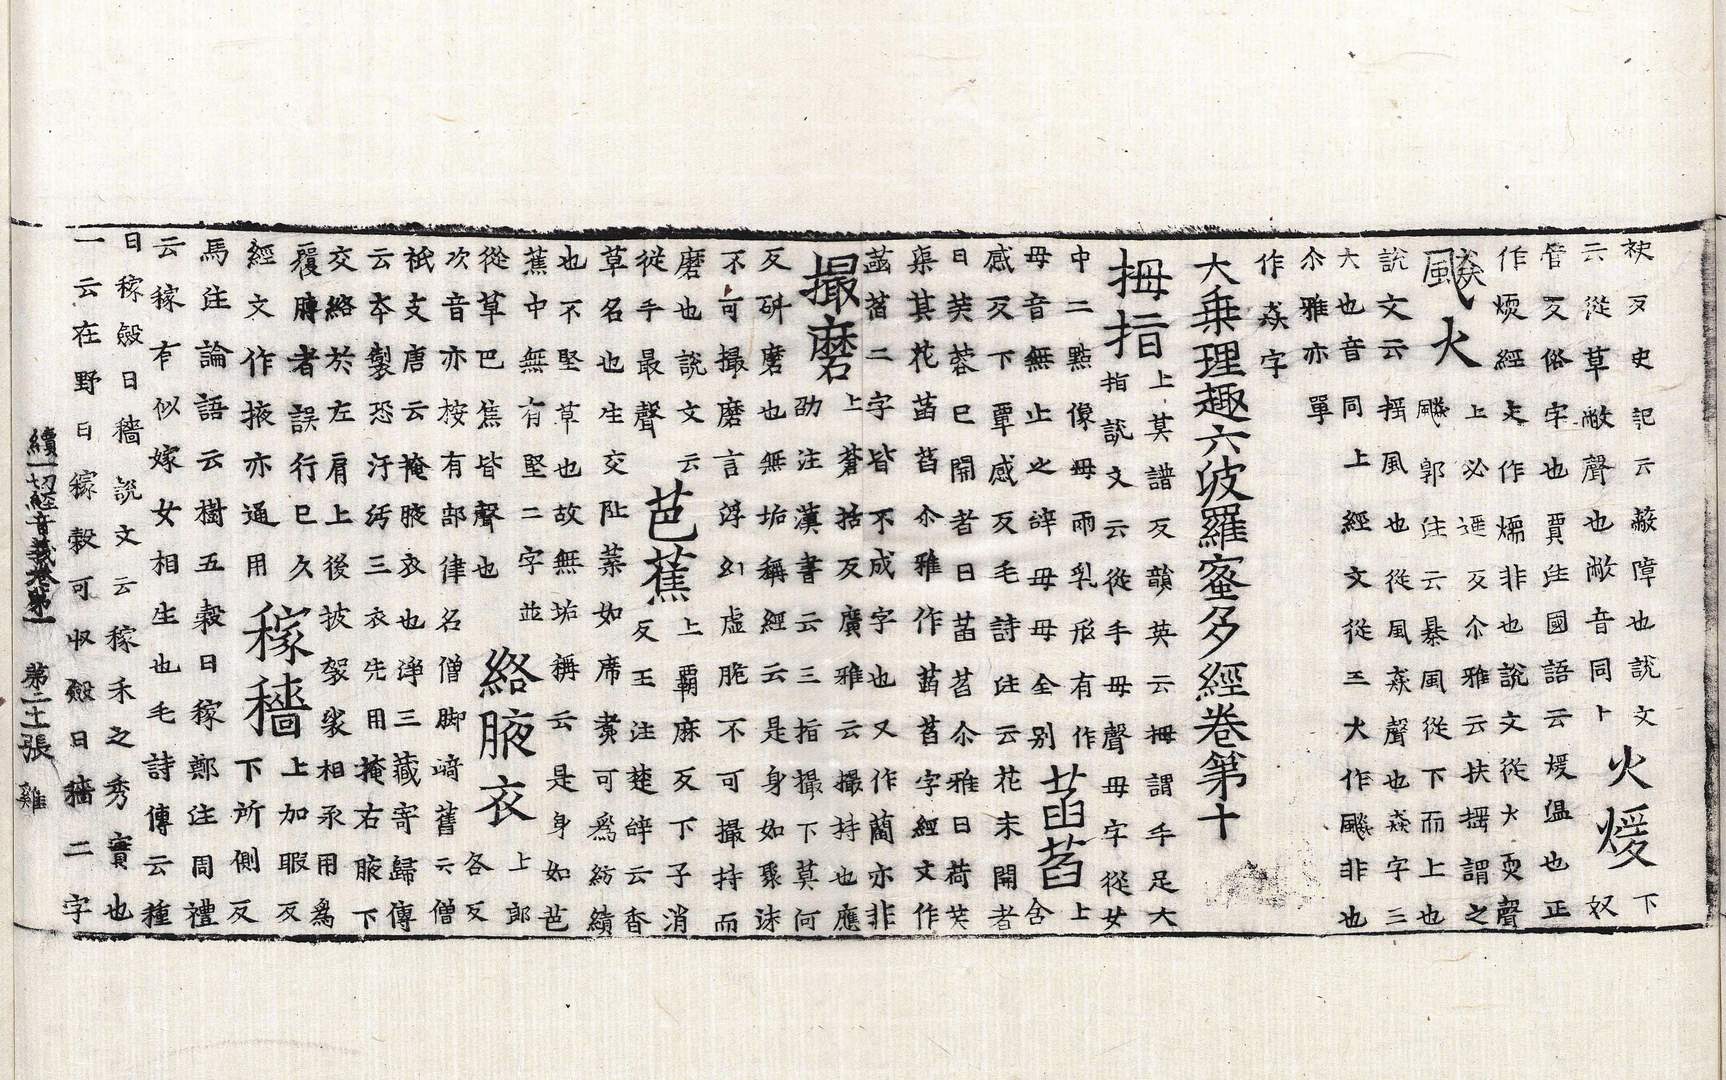 袂反史記云蔽障也說文
云從草敝聲也敝音同卜
火煖下
奴
管反俗字也賈注國語云煖温也正
作煗經文作煗非也說文從火耎聲
飈火上必遥反尒雅云扶揺謂之
飈郭注云暴風從下而上也
說文云揺風也從風猋聲也猋字三
犬也音同上經文從三火作飈非也
尒雅亦單
作猋字
大乗理趣六波羅蜜多經卷第十
拇指上莫譜反韻英云拇謂手足大
指說文云從手母聲母字從女
中二點像母兩乳形有作
毋音無止之辝毋母全別
菡萏上
含
感反下覃感反毛詩注云花未開者
曰芙蓉巳開者曰菡萏尒雅曰荷芙
渠其花菡萏尒雅作菡萏字經文作
菡萏二字皆不成字也又作蘭亦非
撮磨上蒼括反廣雅云撮持也應
劭注漢書云三指撮下莫何
反硏磨也無垢稱經云是身如聚沫
不可撮磨言浮幻虛脆不可撮持而
磨也說文云
從手最聲
芭蕉上覇麻反下子消
反王注楚辝云香
草名也生交阯葉如席煑可爲紡績
也不堅草也故無垢稱云是身如芭
蕉中無有堅二字並
從草巴焦皆聲也
絡腋衣上郎
各反
次音亦桉有部律名僧脚崎舊云僧
祇支唐云掩腋衣也淨三藏寄歸傳
云夲製恐汙污三衣先用掩右腋下
交絡於左肩上後披袈裟相承用爲
覆膊者誤行巳久
經文作掖亦通用
稼穡上加暇反
下所側反
馬注論語云樹五穀曰稼鄭注周禮
云稼有似嫁女相生也毛詩傳云種
曰稼斂曰穡說文云稼禾之秀實也
一云在野曰稼穀可収斂曰穡二字
續一切經音義卷第一 第二十張 雞